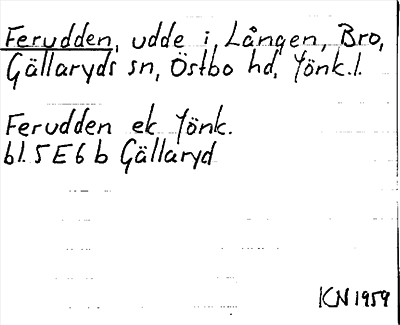 Ferudden, udde i Lången, Bro,
Gällaryds sn, Östbo hd, Jönk. l.
Ferudden ek Jönk.
bl. 5E6b Gällaryd
KN 1959